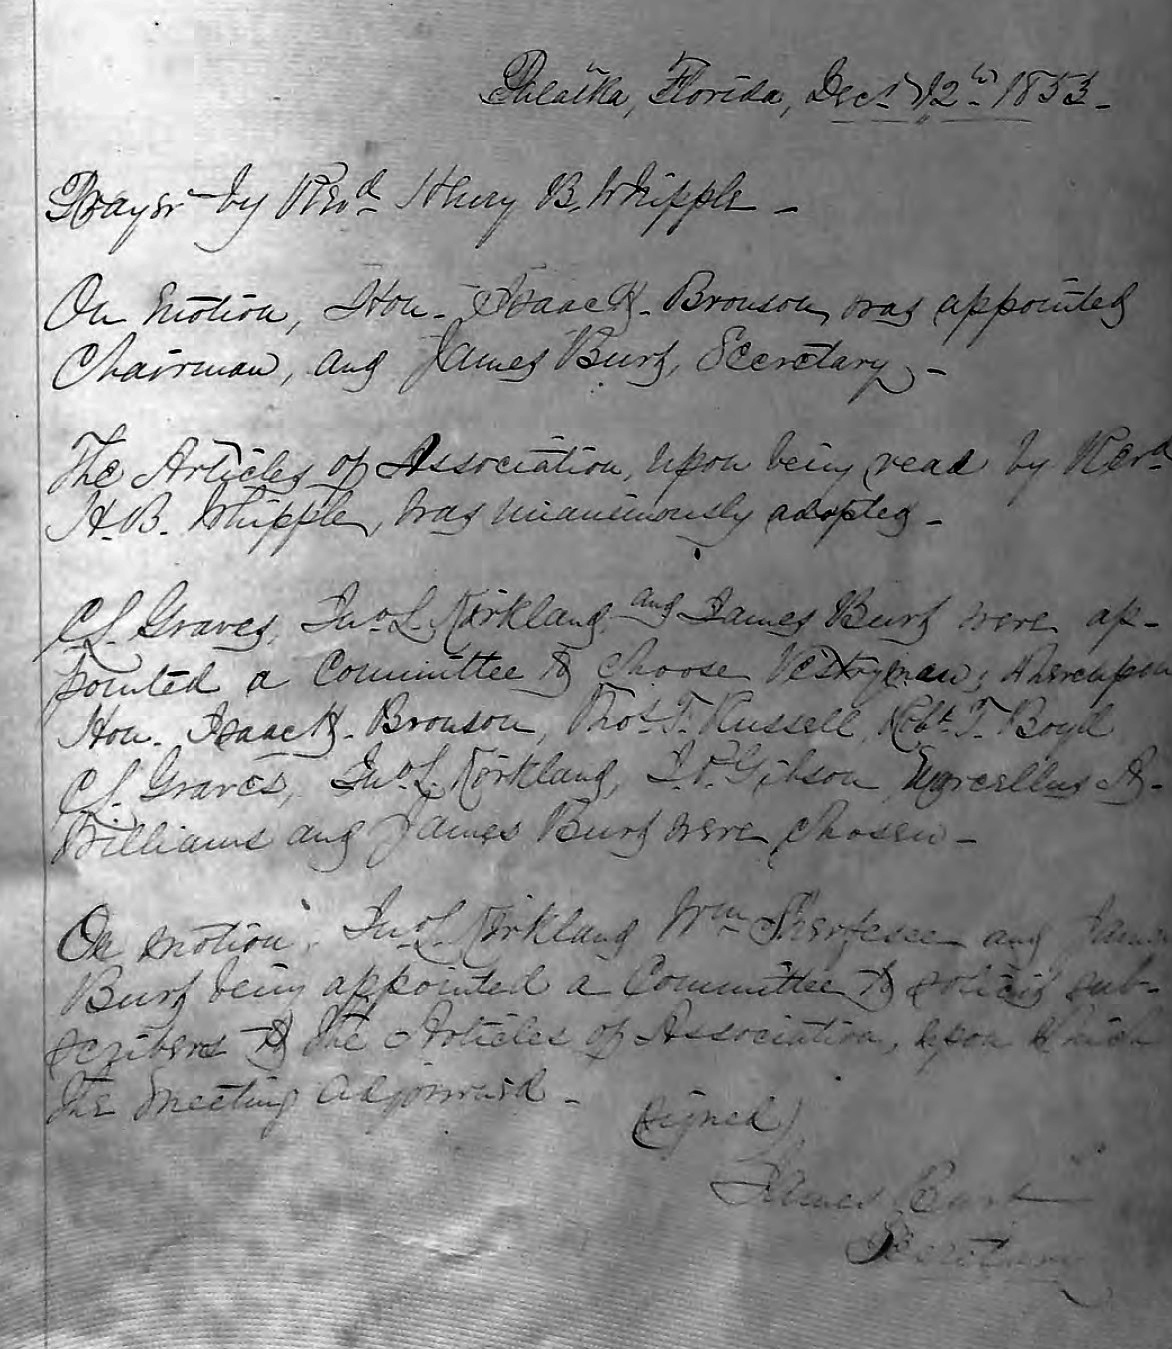 Pilatka, Florida, Decr. 12th 1853.
Prayer by Revd. Henry B. Whipple -
On motion, Hon. Isaac H. Bronson, was appointed
Chairman, and James Burt, Secretary, -
The Articles of Association, upon being read by Revd.
H. B. Whipple, was unanimously adopted -
C. S. Graves, Jno. L. Kirkland, and James Burt were ap-
pointed a Committee to choose Vestryman; whereupon
Hon. Isaac H. Bronson, Thos. T. Russell, Robt. T. Boyd
C. S. Graves, Jno. L. Kirkland, Gibson, Marcellus A.
Williams and James Burt were chosen -
On motion, Jno. L. Kirkland Wm. and James
Burt being appointed a Committee to solicit sub-
scribers to the Articles of Association, upon which
the meeting adjourned -
(signed)
James Burt
Secretary